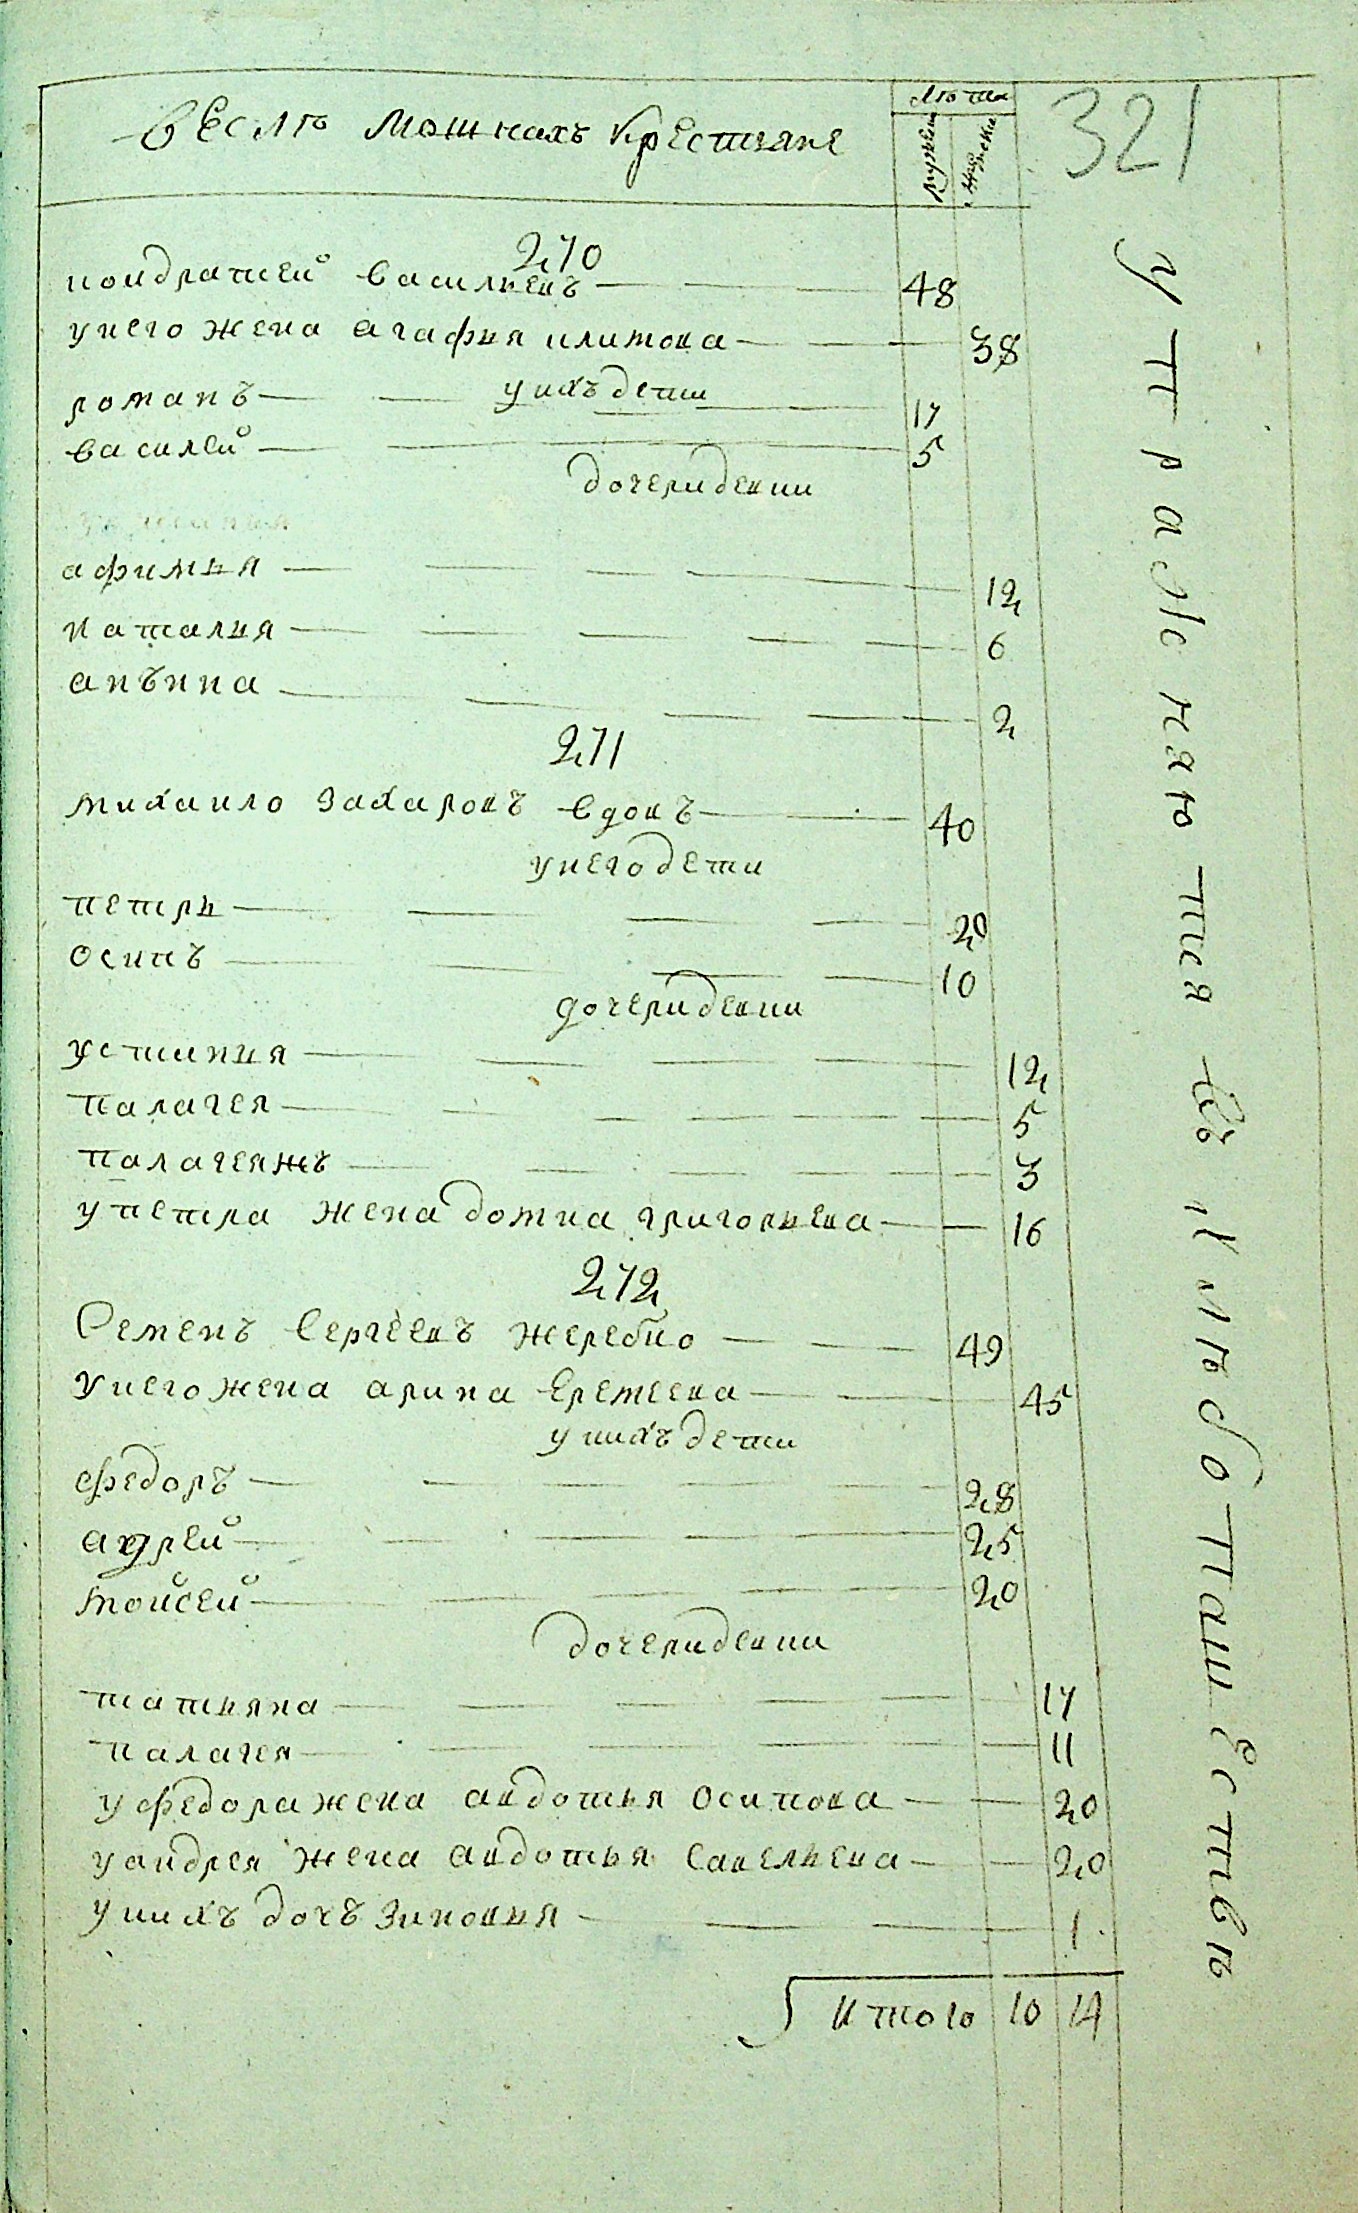 вселѣ Мошкахъ крестьяне
лѣта
мужески
женски
321
270
кондратей васильевъ 48
унего жена агафья климова 38
унихъ дети
романъ 17
василей 5
дочеридевки
афимья 12
наталья 6
анънна 2
271
михаило захаровъ вдовъ 40
унего дети
петръ 20
осипъ 10
дочеридевки
устинья 12
палагея 5
палагеяжъ 3
упетра жена домна григорьева 16
272
Семенъ Сергѣевъ жеребцо 49
унего жена арина Еремеева 45
унихъ дети
федоръ 28
андрей 25
мойсей 20
дочеридевки
татьяна 17
палагея 11
уфедора жена авдотья осипова 20
уандрея жена авдотья савельева 20
унихъ дочъ зиновья 1
Итого 10 14
Упражняются въ хлѣбопашествѣ